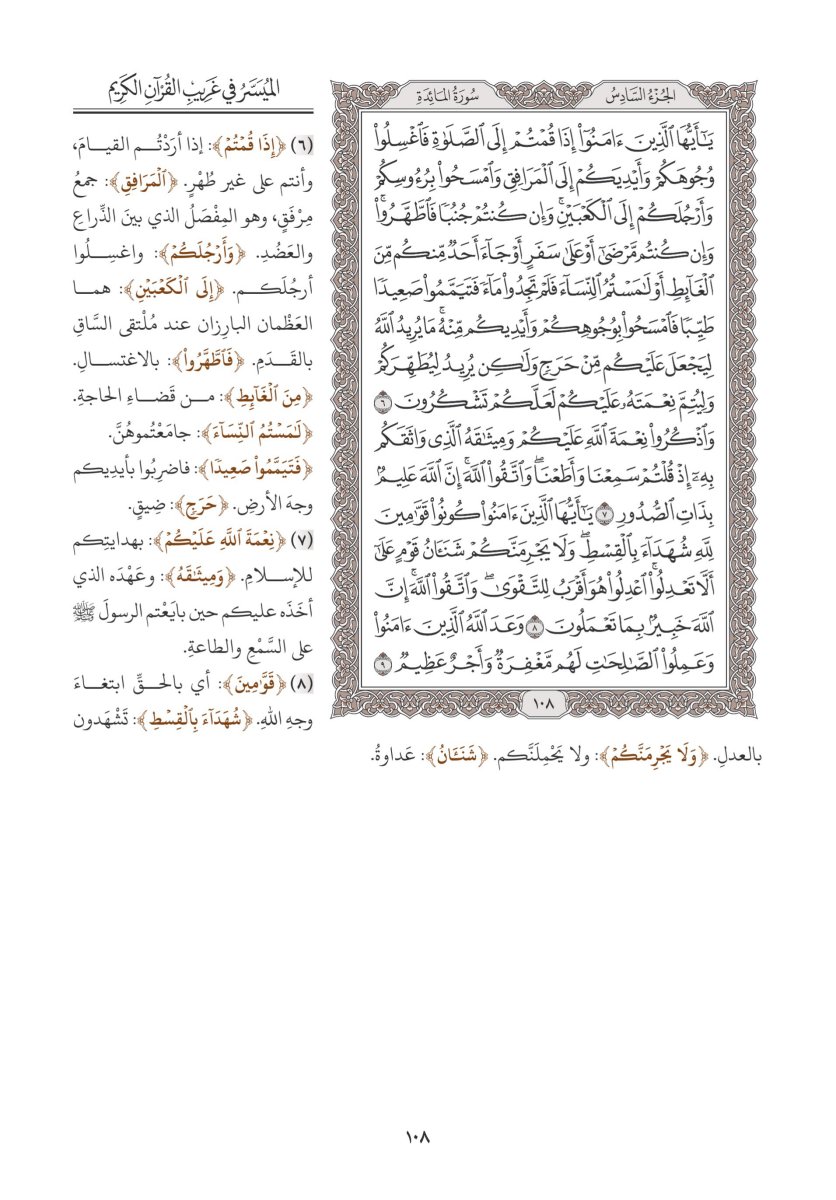 الجُزْءُ السَّادِسُ
سُورَةُ المَائِدَةِ
يَٰٓأَيُّهَا ٱلَّذِينَ ءَامَنُوٓاْ إِذَا قُمۡتُمۡ إِلَى ٱلصَّلَوٰةِ فَٱغۡسِلُواْ
وُجُوهَكُمۡ وَأَيۡدِيَكُمۡ إِلَى ٱلۡمَرَافِقِ وَٱمۡسَحُواْ بِرُءُوسِكُمۡ
وَأَرۡجُلَكُمۡ إِلَى ٱلۡكَعۡبَيۡنِۚ وَإِن كُنتُمۡ جُنُبٗا فَٱطَّهَّرُواْۚ
وَإِن كُنتُم مَّرۡضَىٰٓ أَوۡ عَلَىٰ سَفَرٍ أَوۡ جَآءَ أَحَدٞ مِّنكُم مِّنَ
ٱلۡغَآئِطِ أَوۡ لَٰمَسۡتُمُ ٱلنِّسَآءَ فَلَمۡ تَجِدُواْ مَآءٗ فَتَيَمَّمُواْ صَعِيدٗا
طَيِّبٗا فَٱمۡسَحُواْ بِوُجُوهِكُمۡ وَأَيۡدِيكُم مِّنۡهُۚ مَا يُرِيدُ ٱللَّهُ
لِيَجۡعَلَ عَلَيۡكُم مِّنۡ حَرَجٖ وَلَٰكِن يُرِيدُ لِيُطَهِّرَكُمۡ
وَلِيُتِمَّ نِعۡمَتَهُۥ عَلَيۡكُمۡ لَعَلَّكُمۡ تَشۡكُرُونَ ٦
وَٱذۡكُرُواْ نِعۡمَةَ ٱللَّهِ عَلَيۡكُمۡ وَمِيثَٰقَهُ ٱلَّذِي وَاثَقَكُم
بِهِۦٓ إِذۡ قُلۡتُمۡ سَمِعۡنَا وَأَطَعۡنَاۖ وَٱتَّقُواْ ٱللَّهَۚ إِنَّ ٱللَّهَ عَلِيمُۢ
بِذَاتِ ٱلصُّدُورِ ٧ يَٰٓأَيُّهَا ٱلَّذِينَ ءَامَنُواْ كُونُواْ قَوَّٰمِينَ
لِلَّهِ شُهَدَآءَ بِٱلۡقِسۡطِۖ وَلَا يَجۡرِمَنَّكُمۡ شَنَـَٔانُ قَوۡمٍ عَلَىٰٓ
أَلَّا تَعۡدِلُواْۚ ٱعۡدِلُواْ هُوَ أَقۡرَبُ لِلتَّقۡوَىٰۖ وَٱتَّقُواْ ٱللَّهَۚ إِنَّ
ٱللَّهَ خَبِيرُۢ بِمَا تَعۡمَلُونَ ٨ وَعَدَ ٱللَّهُ ٱلَّذِينَ ءَامَنُواْ
وَعَمِلُواْ ٱلصَّٰلِحَٰتِ لَهُم مَّغۡفِرَةٞ وَأَجۡرٌ عَظِيمٞ ٩
١٠٨
المُيَسَّرُ في غَرِيبِ القُرْآنِ الكَرِيمِ
(٦) ﴿إِذَا قُمۡتُمۡ﴾: إذا أرَدْتُم القيامَ،
وأنتم على غير طُهْرٍ. ﴿ٱلۡمَرَافِقِ﴾: جمعُ
مِرْفَقٍ، وهو المِفْصَلُ الذي بينَ الذِّراعِ
والعَضُدِ. ﴿وَأَرۡجُلَكُمۡ﴾: واغسِلُوا
أرجُلَكم. ﴿إِلَى ٱلۡكَعۡبَيۡنِ﴾: هما
العَظْمان البارِزان عند مُلْتقى السَّاقِ
بالقَدَمِ. ﴿فَٱطَّهَّرُواْ﴾: بالاغتسالِ.
﴿مِنَ ٱلۡغَآئِطِ﴾: من قَضاءِ الحاجةِ.
﴿لَٰمَسۡتُمُ ٱلنِّسَآءَ﴾: جامَعْتُموهُنَّ.
﴿فَتَيَمَّمُواْ صَعِيدٗا﴾: فاضرِبُوا بأيدِيكم
وجهَ الأرضِ. ﴿حَرَجٖ﴾: ضِيقٍ.
(٧) ﴿نِعۡمَةَ ٱللَّهِ عَلَيۡكُمۡ﴾: بهدايتِكم
للإسلامِ. ﴿وَمِيثَٰقَهُ﴾: وعَهْدَه الذي
أخَذَه عليكم حين بايَعْتم الرسولَ ﷺ
على السَّمْعِ والطاعةِ.
(٨) ﴿قَوَّٰمِينَ﴾: أي بالحقِّ ابتغاءَ
وجهِ اللهِ. ﴿شُهَدَآءَ بِٱلۡقِسۡطِ﴾: تَشْهَدون
بالعدلِ. ﴿وَلَا يَجۡرِمَنَّكُمۡ﴾: ولا يَحْمِلَنَّكم. ﴿شَنَـَٔانُ﴾: عَداوةُ.
١٠٨